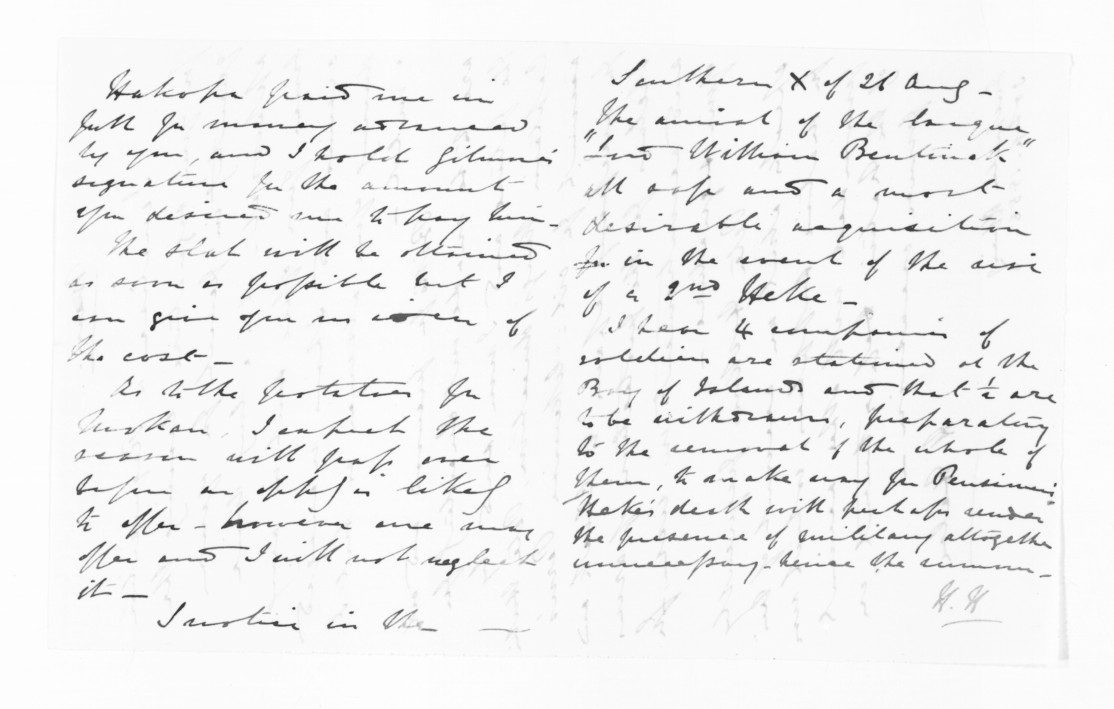 Hakopa paid me in
full for money advanced
by you, and I hold Gilmour's
signature for the amount
you desired me to pay him -
The slab will be obtained
as soon as possible but I
can give you no idea of
the cost -
As to the potatoes for
I expect the
season will pass over
before an oppy is likely
to offer - however one may
offer and I will not neglect
it -
I notice in the
Southern X of 26 Aug -
The arrival of the
"Lord William Bentinck"
all safe and a most
desirable acquisition
in the event of the rise
of a 2nd Heke -
I hear 4 companies of
soldiers are stationed at the
Bay of Islands and that ½ are
to be withdrawn, preparatory
to the removal of the whole of
them, to make way for Pensioners
Heke's death will perhaps render
the presence of military altogether
unnecessary - hence the rumour -
H. H